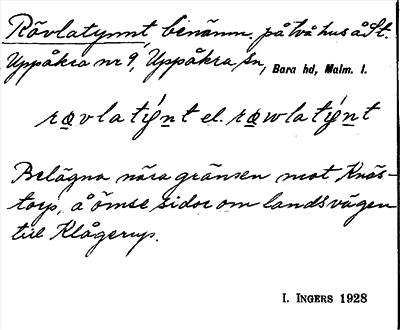 Rövlatynnt, benämn. på två hus å St.
Uppåkra nr 9, Uppåkra sn, Bara hd, Malm. l.
røvlatýnt el. røwlatýnt
Belägna nära gränsen mot Knäs-
torp, å ömse sidor om landsvägen
till Klågerup.
I. INGERS 1928